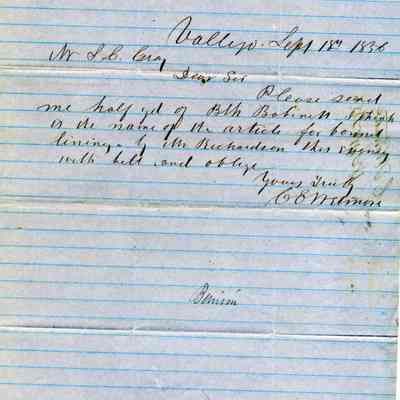 Vallejo. Sept 18th 1856
Mr L. C. Gray
Dear Sir
Please send
me half yd of Blk Bobinett I think
is the name of the article for bonnet
lining. by Mr Richardson this evening
with bill and oblige
Yours Truly
C C Wetmore
Benicia